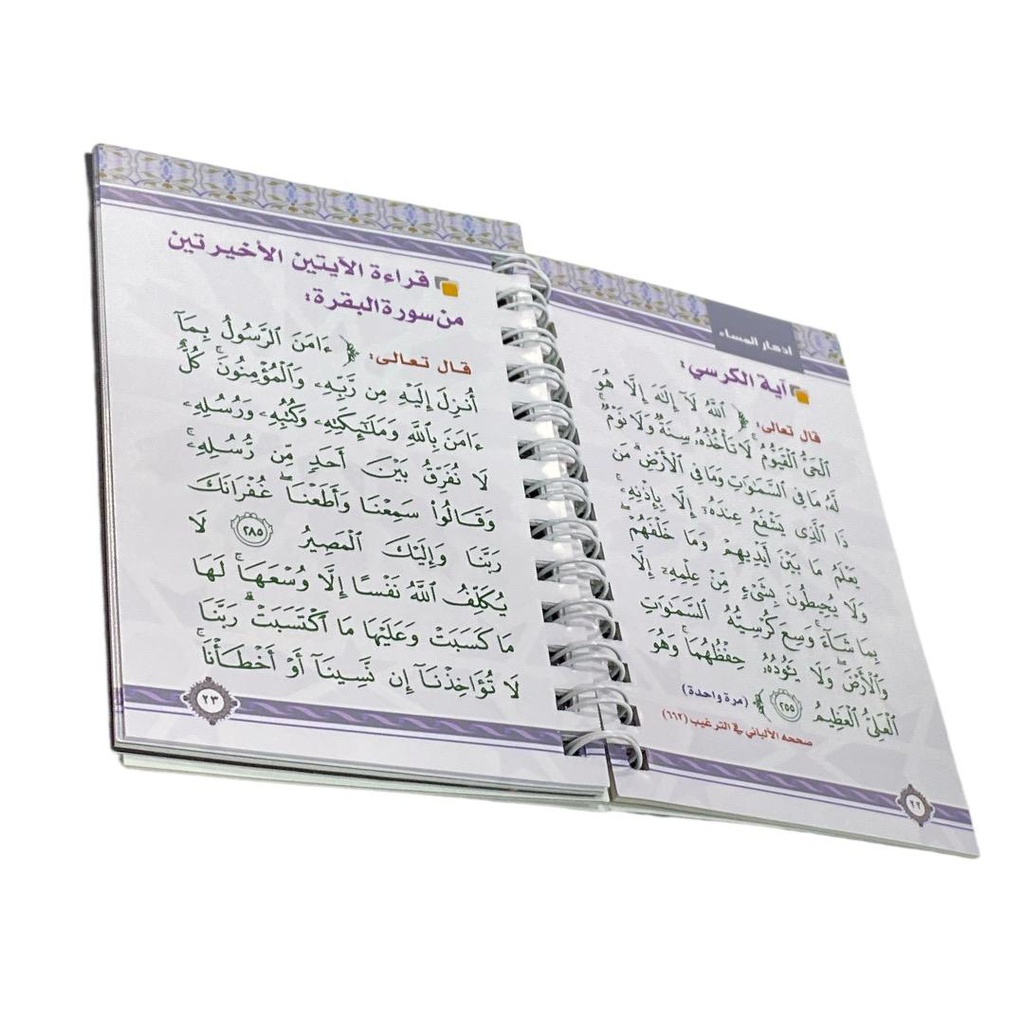 أذكار المساء
آية الكرسي:
قال تعالى: ﴿ ٱللَّهُ لَآ إِلَٰهَ إِلَّا هُوَ
ٱلْحَىُّ ٱلْقَيُّومُ ۚ لَا تَأْخُذُهُۥ سِنَةٌ وَلَا نَوْمٌ ۚ
لَّهُۥ مَا فِى ٱلسَّمَٰوَٰتِ وَمَا فِى ٱلْأَرْضِ ۗ مَن
ذَا ٱلَّذِى يَشْفَعُ عِندَهُۥٓ إِلَّا بِإِذْنِهِۦ ۚ
يَعْلَمُ مَا بَيْنَ أَيْدِيهِمْ وَمَا خَلْفَهُمْ ۖ
وَلَا يُحِيطُونَ بِشَىْءٍ مِّنْ عِلْمِهِۦٓ إِلَّا
بِمَا شَآءَ ۚ وَسِعَ كُرْسِيُّهُ ٱلسَّمَٰوَٰتِ
وَٱلْأَرْضَ ۖ وَلَا يَـُٔودُهُۥ حِفْظُهُمَا ۚ وَهُوَ
ٱلْعَلِىُّ ٱلْعَظِيمُ ٢٥٥ ﴾ (مرة واحدة)
صححه الألباني في الترغيب (٦٦٢)
٢٢
قراءة الآيتين الأخيرتين
من سورة البقرة:
قال تعالى: ﴿ ءَامَنَ ٱلرَّسُولُ بِمَآ
أُنزِلَ إِلَيْهِ مِن رَّبِّهِۦ وَٱلْمُؤْمِنُونَ ۚ كُلٌّ
ءَامَنَ بِٱللَّهِ وَمَلَٰٓئِكَتِهِۦ وَكُتُبِهِۦ وَرُسُلِهِۦ
لَا نُفَرِّقُ بَيْنَ أَحَدٍ مِّن رُّسُلِهِۦ ۚ
وَقَالُوا۟ سَمِعْنَا وَأَطَعْنَا ۖ غُفْرَانَكَ
رَبَّنَا وَإِلَيْكَ ٱلْمَصِيرُ ٢٨٥ لَا
يُكَلِّفُ ٱللَّهُ نَفْسًا إِلَّا وُسْعَهَا ۚ لَهَا
مَا كَسَبَتْ وَعَلَيْهَا مَا ٱكْتَسَبَتْ ۗ رَبَّنَا
لَا تُؤَاخِذْنَآ إِن نَّسِينَآ أَوْ أَخْطَأْنَا ۚ
٢٣